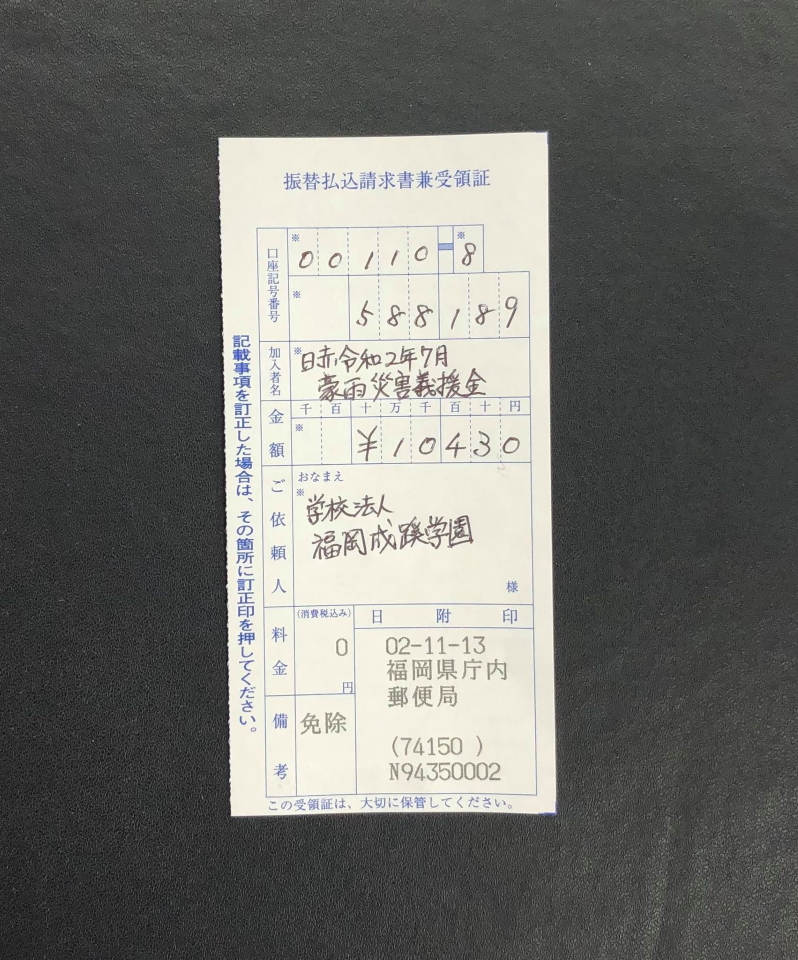 振替払込請求書兼受領証
口座記号番号
※ 00110-※8
※ 588189
加入者名
※日赤令和2年7月
豪雨災害義援金
金額
千百十万千百十円
※ ¥10430
ご依頼人
おなまえ
※
学校法人
福岡成蹊学園
様
料金
(消費税込み)
0
円
備考
免除
日附印
02-11-13
福岡県庁内
郵便局
(74150 )
N94350002
この受領証は、大切に保管してください。
記載事項を訂正した場合は、その箇所に訂正印を押してください。